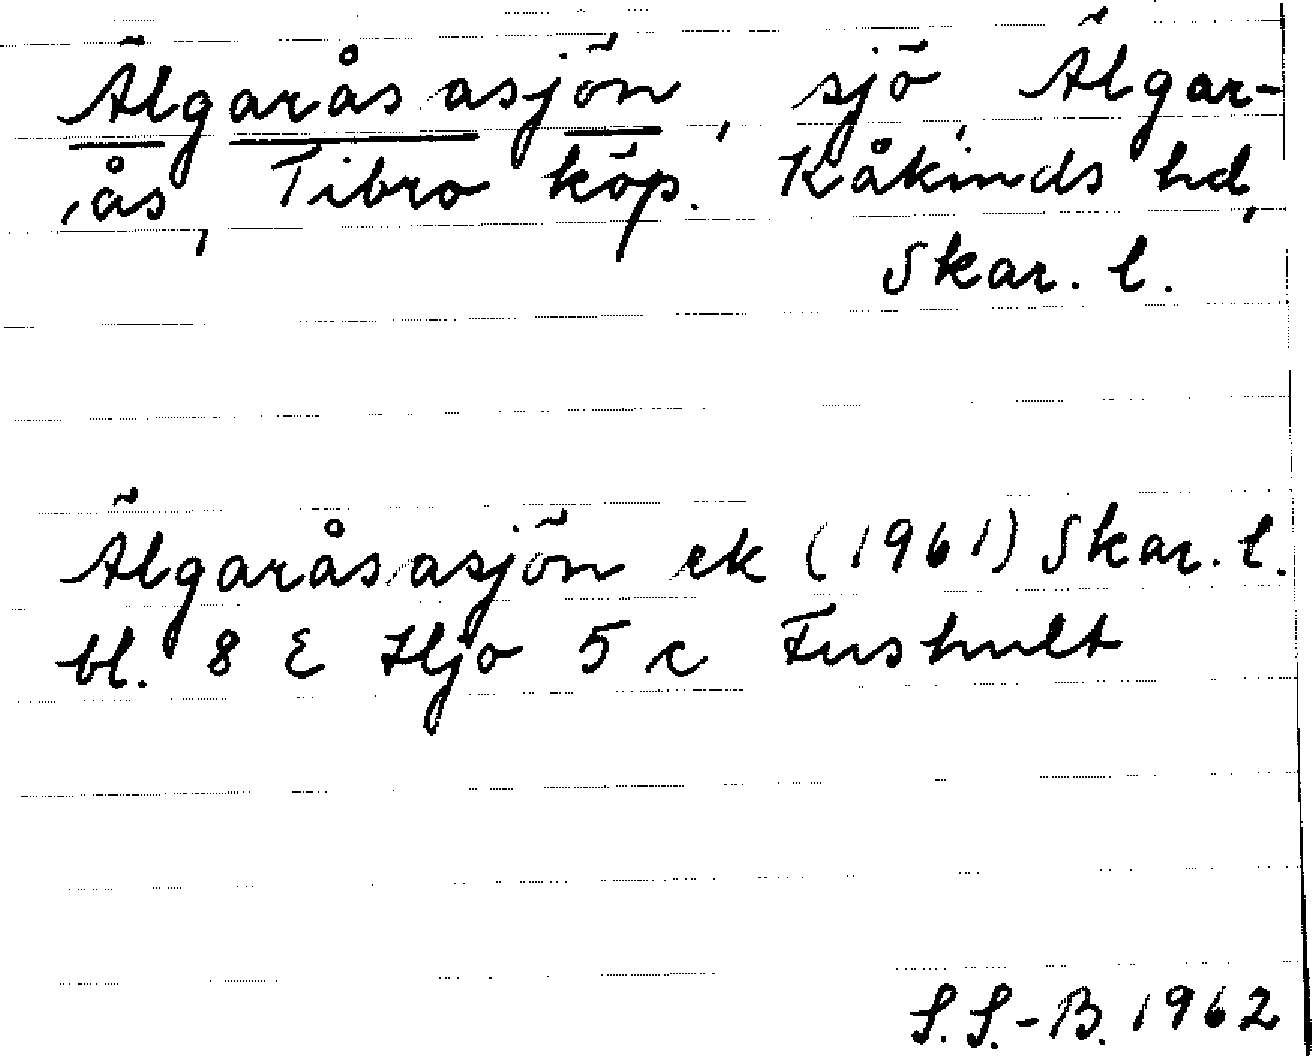 Älgaråsasjön, sjö, Älgar-
ås, Tibro köp. Kåkinds hd,
Skar. l.
Älgaråsasjön ek (1961) Skar. l.
bl. 8 E Hjo 5 c Fushult
S.S.-B. 1962